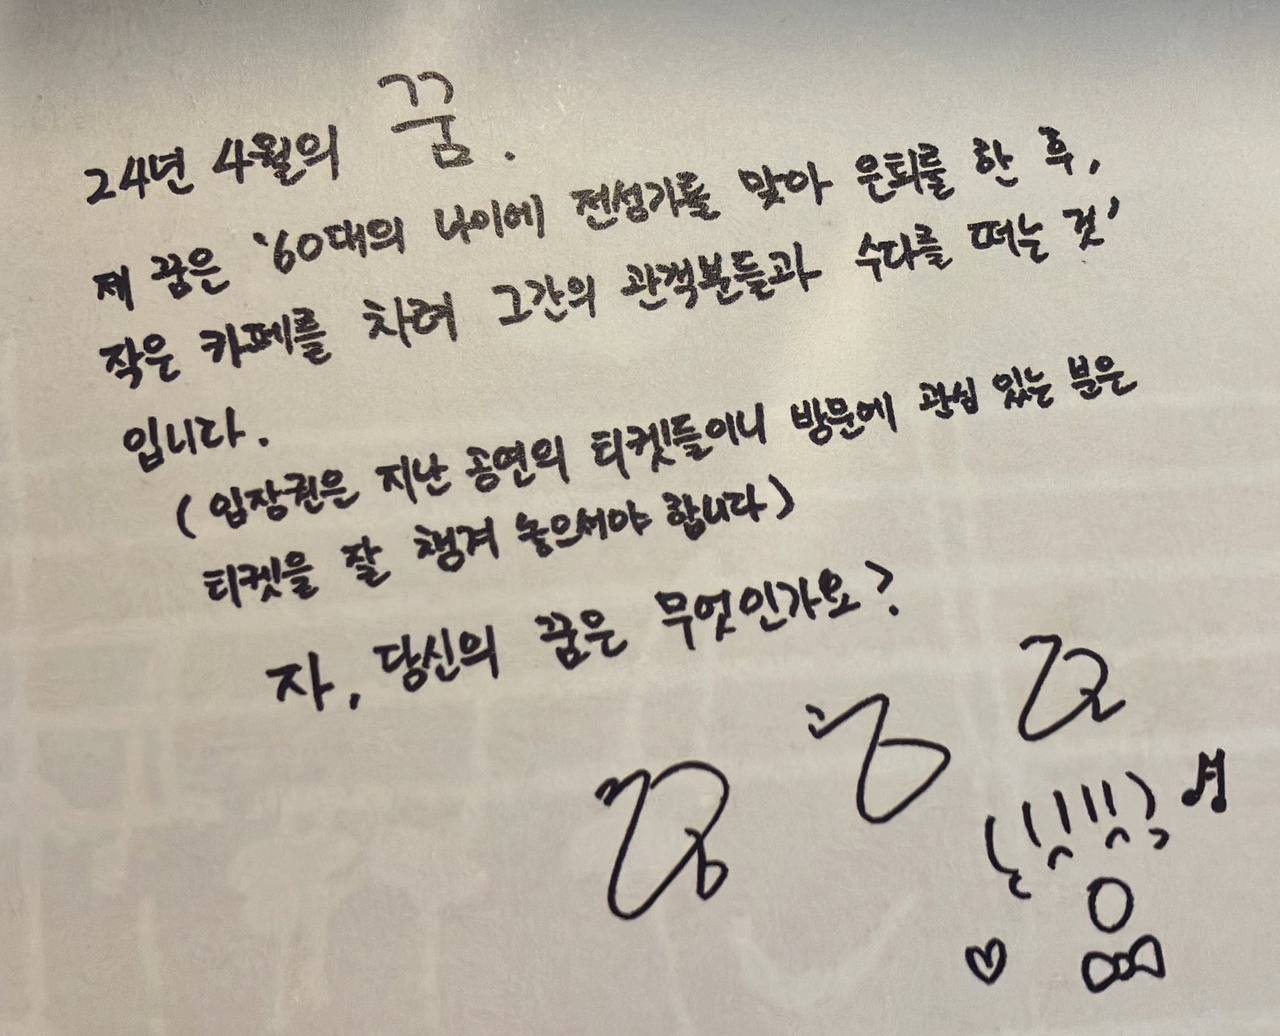 24년 4월의 꿈.
제 꿈은 '60대의 나이에 전성기를 맞아 은퇴를 한 후,
작은 카페를 차려 그간의 관객분들과 수다를 떠는 것'
입니다.
(입장권은 지난 공연의 티켓들이니 방문에 관심 있는 분은
티켓을 잘 챙겨 놓으셔야 합니다)
자, 당신의 꿈은 무엇인가요?